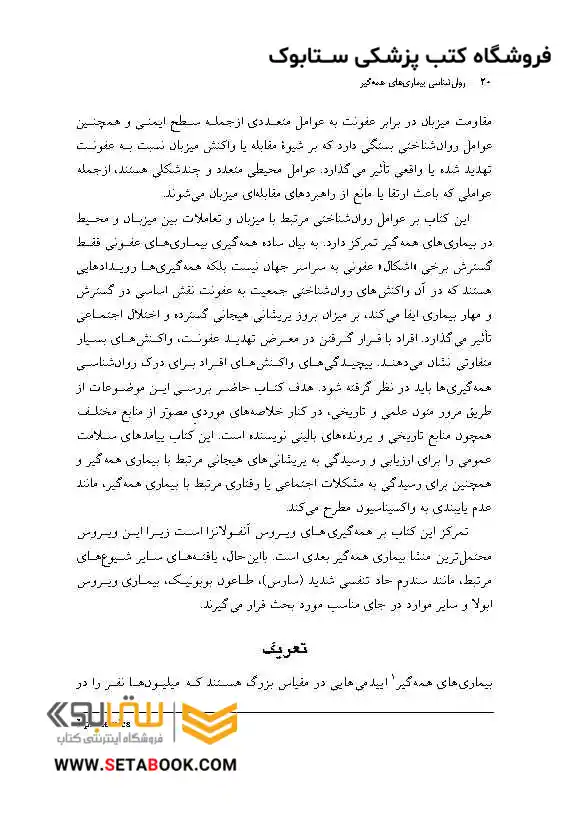 فروشگاه کتب پزشکی ستابوک
۲۰ روان‌شناسی بیماری‌های همه‌گیر
مقاومت میزبان در برابر عفونت به عوامل متعددی ازجمله سطح ایمنی و همچنین
عوامل روان‌شناختی بستگی دارد که بر شیوهٔ مقابله یا واکنش میزبان نسبت به عفونت
تهدید شده یا واقعی تأثیر می‌گذارد. عوامل محیطی متعدد و چندشکلی هستند، ازجمله
عواملی که باعث ارتقا یا مانع از راهبردهای مقابله‌ای میزبان می‌شوند.
این کتاب بر عوامل روان‌شناختی مرتبط با میزبان و تعاملات بین میزبان و محیط
در بیماری‌های همه‌گیر تمرکز دارد. به بیان ساده همه‌گیری بیماری‌های عفونی فقط
گسترش برخی «اشکال» عفونی به سراسر جهان نیست بلکه همه‌گیری‌ها رویدادهایی
هستند که در آن واکنش‌های روان‌شناختی جمعیت به عفونت نقش اساسی در گسترش
و مهار بیماری ایفا می‌کند، بر میزان بروز پریشانی هیجانی گسترده و اختلال اجتماعی
تأثیر می‌گذارد. افراد با قرار گرفتن در معرض تهدید عفونت، واکنش‌های بسیار
متفاوتی نشان می‌دهند. پیچیدگی‌های واکنش‌های افراد برای درک روان‌شناسی
همه‌گیری‌ها باید در نظر گرفته شود. هدف کتاب حاضر بررسی این موضوعات از
طریق مرور متون علمی و تاریخی، در کنار خلاصه‌های موردیِ مصوّر از منابع مختلف
همچون منابع تاریخی و پرونده‌های بالینی نویسنده است. این کتاب پیامدهای سلامت
عمومی را برای ارزیابی و رسیدگی به پریشانی‌های هیجانی مرتبط با بیماری همه‌گیر و
همچنین برای رسیدگی به مشکلات اجتماعی یا رفتاری مرتبط با بیماری همه‌گیر، مانند
عدم پایبندی به واکسیناسیون مطرح می‌کند.
تمرکز این کتاب بر همه‌گیری‌های ویروس آنفولانزا است زیرا این ویروس
محتمل‌ترین منشا بیماری همه‌گیر بعدی است. بااین‌حال، یافته‌های سایر شیوع‌های
مرتبط، مانند سندرم حاد تنفسی شدید (سارس)، طاعون بوبونیک، بیماری ویروس
ابولا و سایر موارد در جای مناسب مورد بحث قرار می‌گیرند.
تعریف
بیماری‌های همه‌گیر۱ اپیدمی‌هایی در مقیاس بزرگ هستند که میلیون‌ها نفر را در
ستابوک
فروشگاه اینترنتی کتاب
WWW.SETABOOK.COM